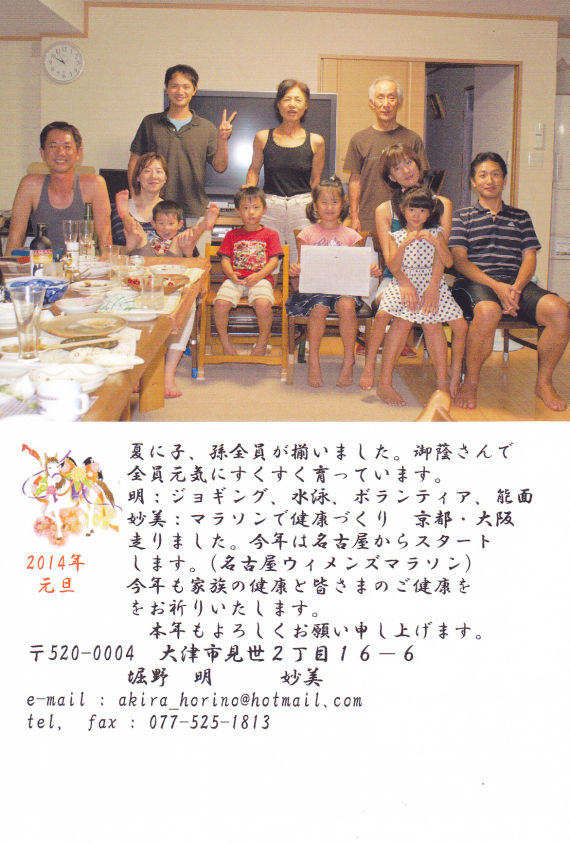 夏に子、孫全員が揃いました。御蔭さんで
全員元気にすくすく育っています。
明：ジョギング、水泳、ボランティア、能面
妙美：マラソンで健康づくり　京都・大阪
走りました。今年は名古屋からスタート
します。（名古屋ウィメンズマラソン）
今年も家族の健康と皆さまのご健康を
をお祈りいたします。
本年もよろしくお願い申し上げます。
2014年
元旦
〒520-0004　大津市見世２丁目１６－６
堀野　明　　　妙美
e-mail : akira_horino@hotmail.com
tel,　fax : 077-525-1813